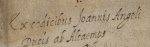 Ex codicibus Joannis Angeli
Ducis ab Altaemps